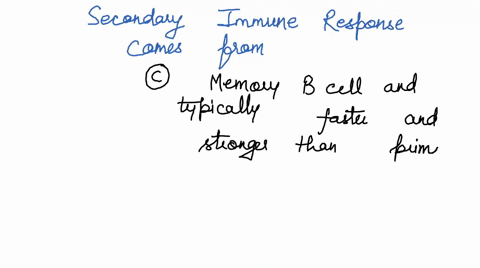 Secondary Immune Response
Comes from
C Memory B cell and
typically faster and
stronger than prim